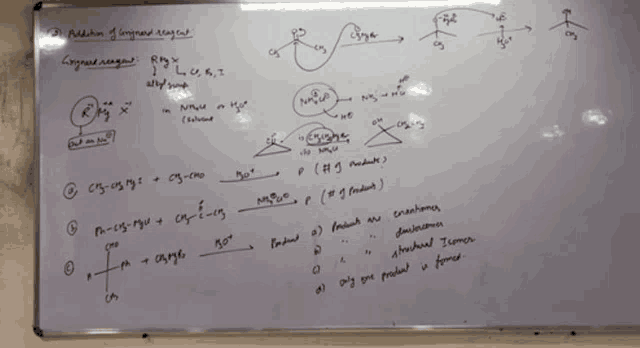 Addition of Grignard reagent
Grignard reagent: R Mg X
Cl, Br, I
alkyl group
R Mg X in NH4Cl or H3O+
(solvent
Act as Nu
NH4Cl → NH3 + HCl
H+
CH3 CH3 CH3MgBr
CH3 CH3
H3O+
OH
CH3CH2MgBr
NH4Cl
OH CH2CH3
(a) CH3-CH2MgI + CH3-CHO H3O+ → P (# of Products)
(b) Ph-CH2-MgCl + CH3-C-CH3 NH4Cl → P (# of Products)
O
(c) CHO
H Ph + CH3MgBr H3O+ → Product a) Products are enantiomer
CH3
b) " " diastereomer
c) " " structural Isomer
d) Only one product is formed.